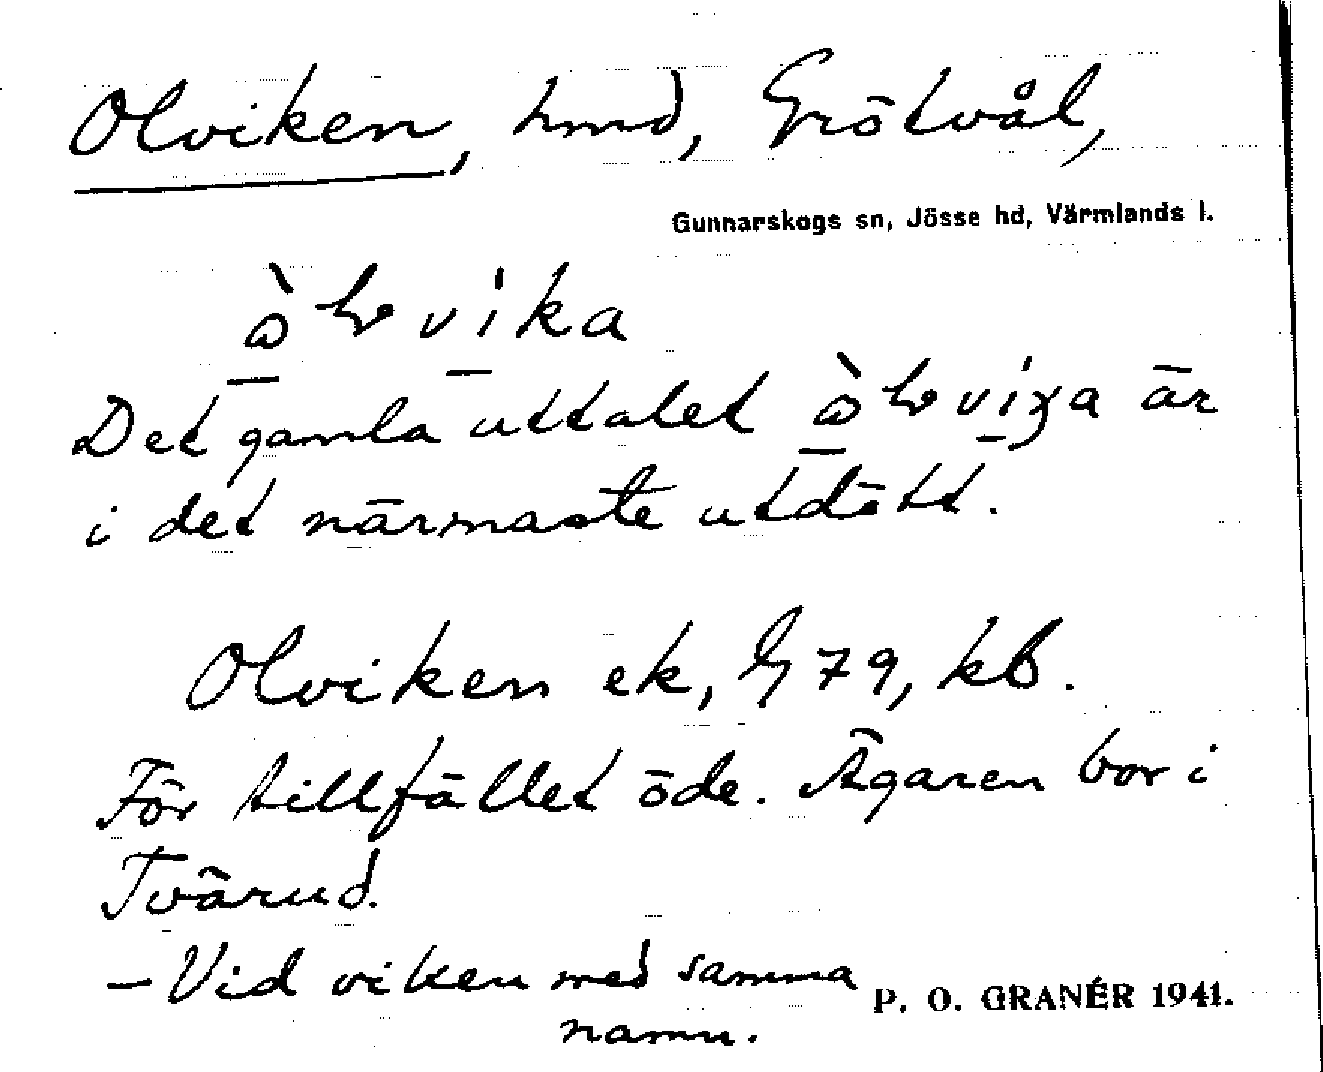 Olviken, hmd, Grötvål,
Gunnarskogs sn, Jösse hd, Värmlands l.
Det gamla uttalet är
i det närmaste utdött.
Olviken ek, G 79, kb.
För tillfället öde. Ägaren bor i
Tvärud.
– Vid viken med samma
namn.
P. O. GRANÉR 1941.